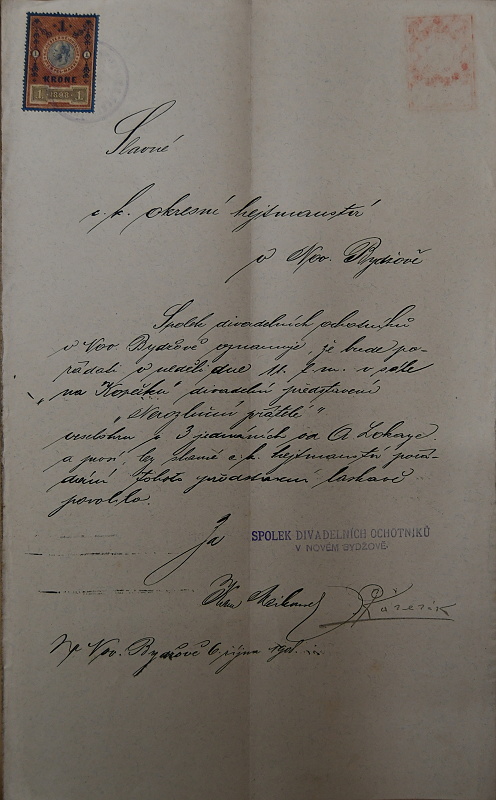 1
KRONE
1 1898 1
Slavné
c. k. okresní hejtmanství
v Nov. Bydžově
Spolek divadelních ochotníků
v Nov. Bydžově oznamuje, že bude po-
řádati v neděli dne 11. t. m. v sále
„na Kopečku" divadelní představení
„Nerozluční přátelé"
veselohru o 3 jednáních od A Lokaye
a prosí, by slavné c. k. hejtmanství pořá-
dání tohoto představení laskavě
povolilo.
Za
SPOLEK DIVADELNÍCH OCHOTNÍKŮ
V NOVÉM BYDŽOVĚ
V Nov. Bydžově 6. října